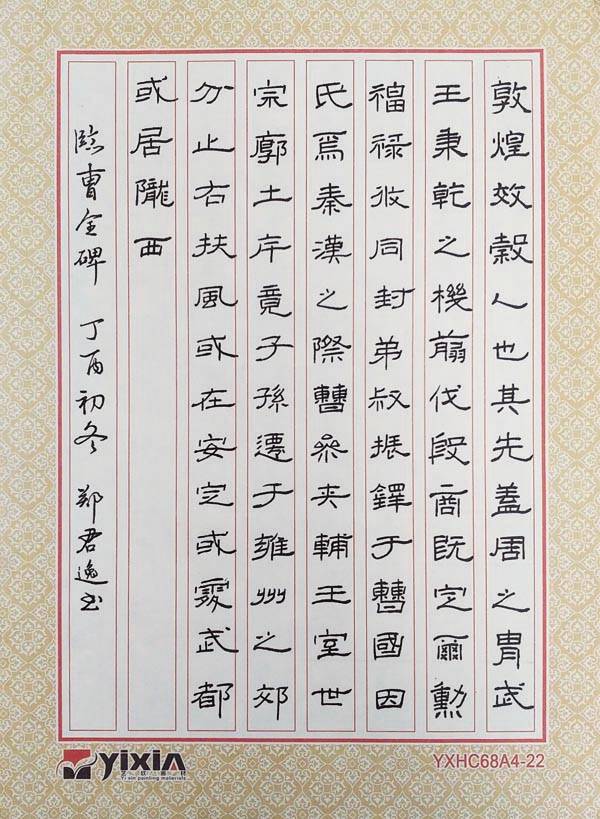 敦煌效穀人也其先蓋周之胄武
王秉乾之機翦伐殷商既定爾勳
福祿攸同封弟叔振鐸于曹國因
氏焉秦漢之際曹參夾輔王室世
宗廓土斥竟子孫遷于雍州之郊
分止右扶風或在安定或處武都
或居隴西
臨曹全碑 丁酉初冬 鄭君逸书
yixin
Yi xin painting materials
YXHC68A4-22